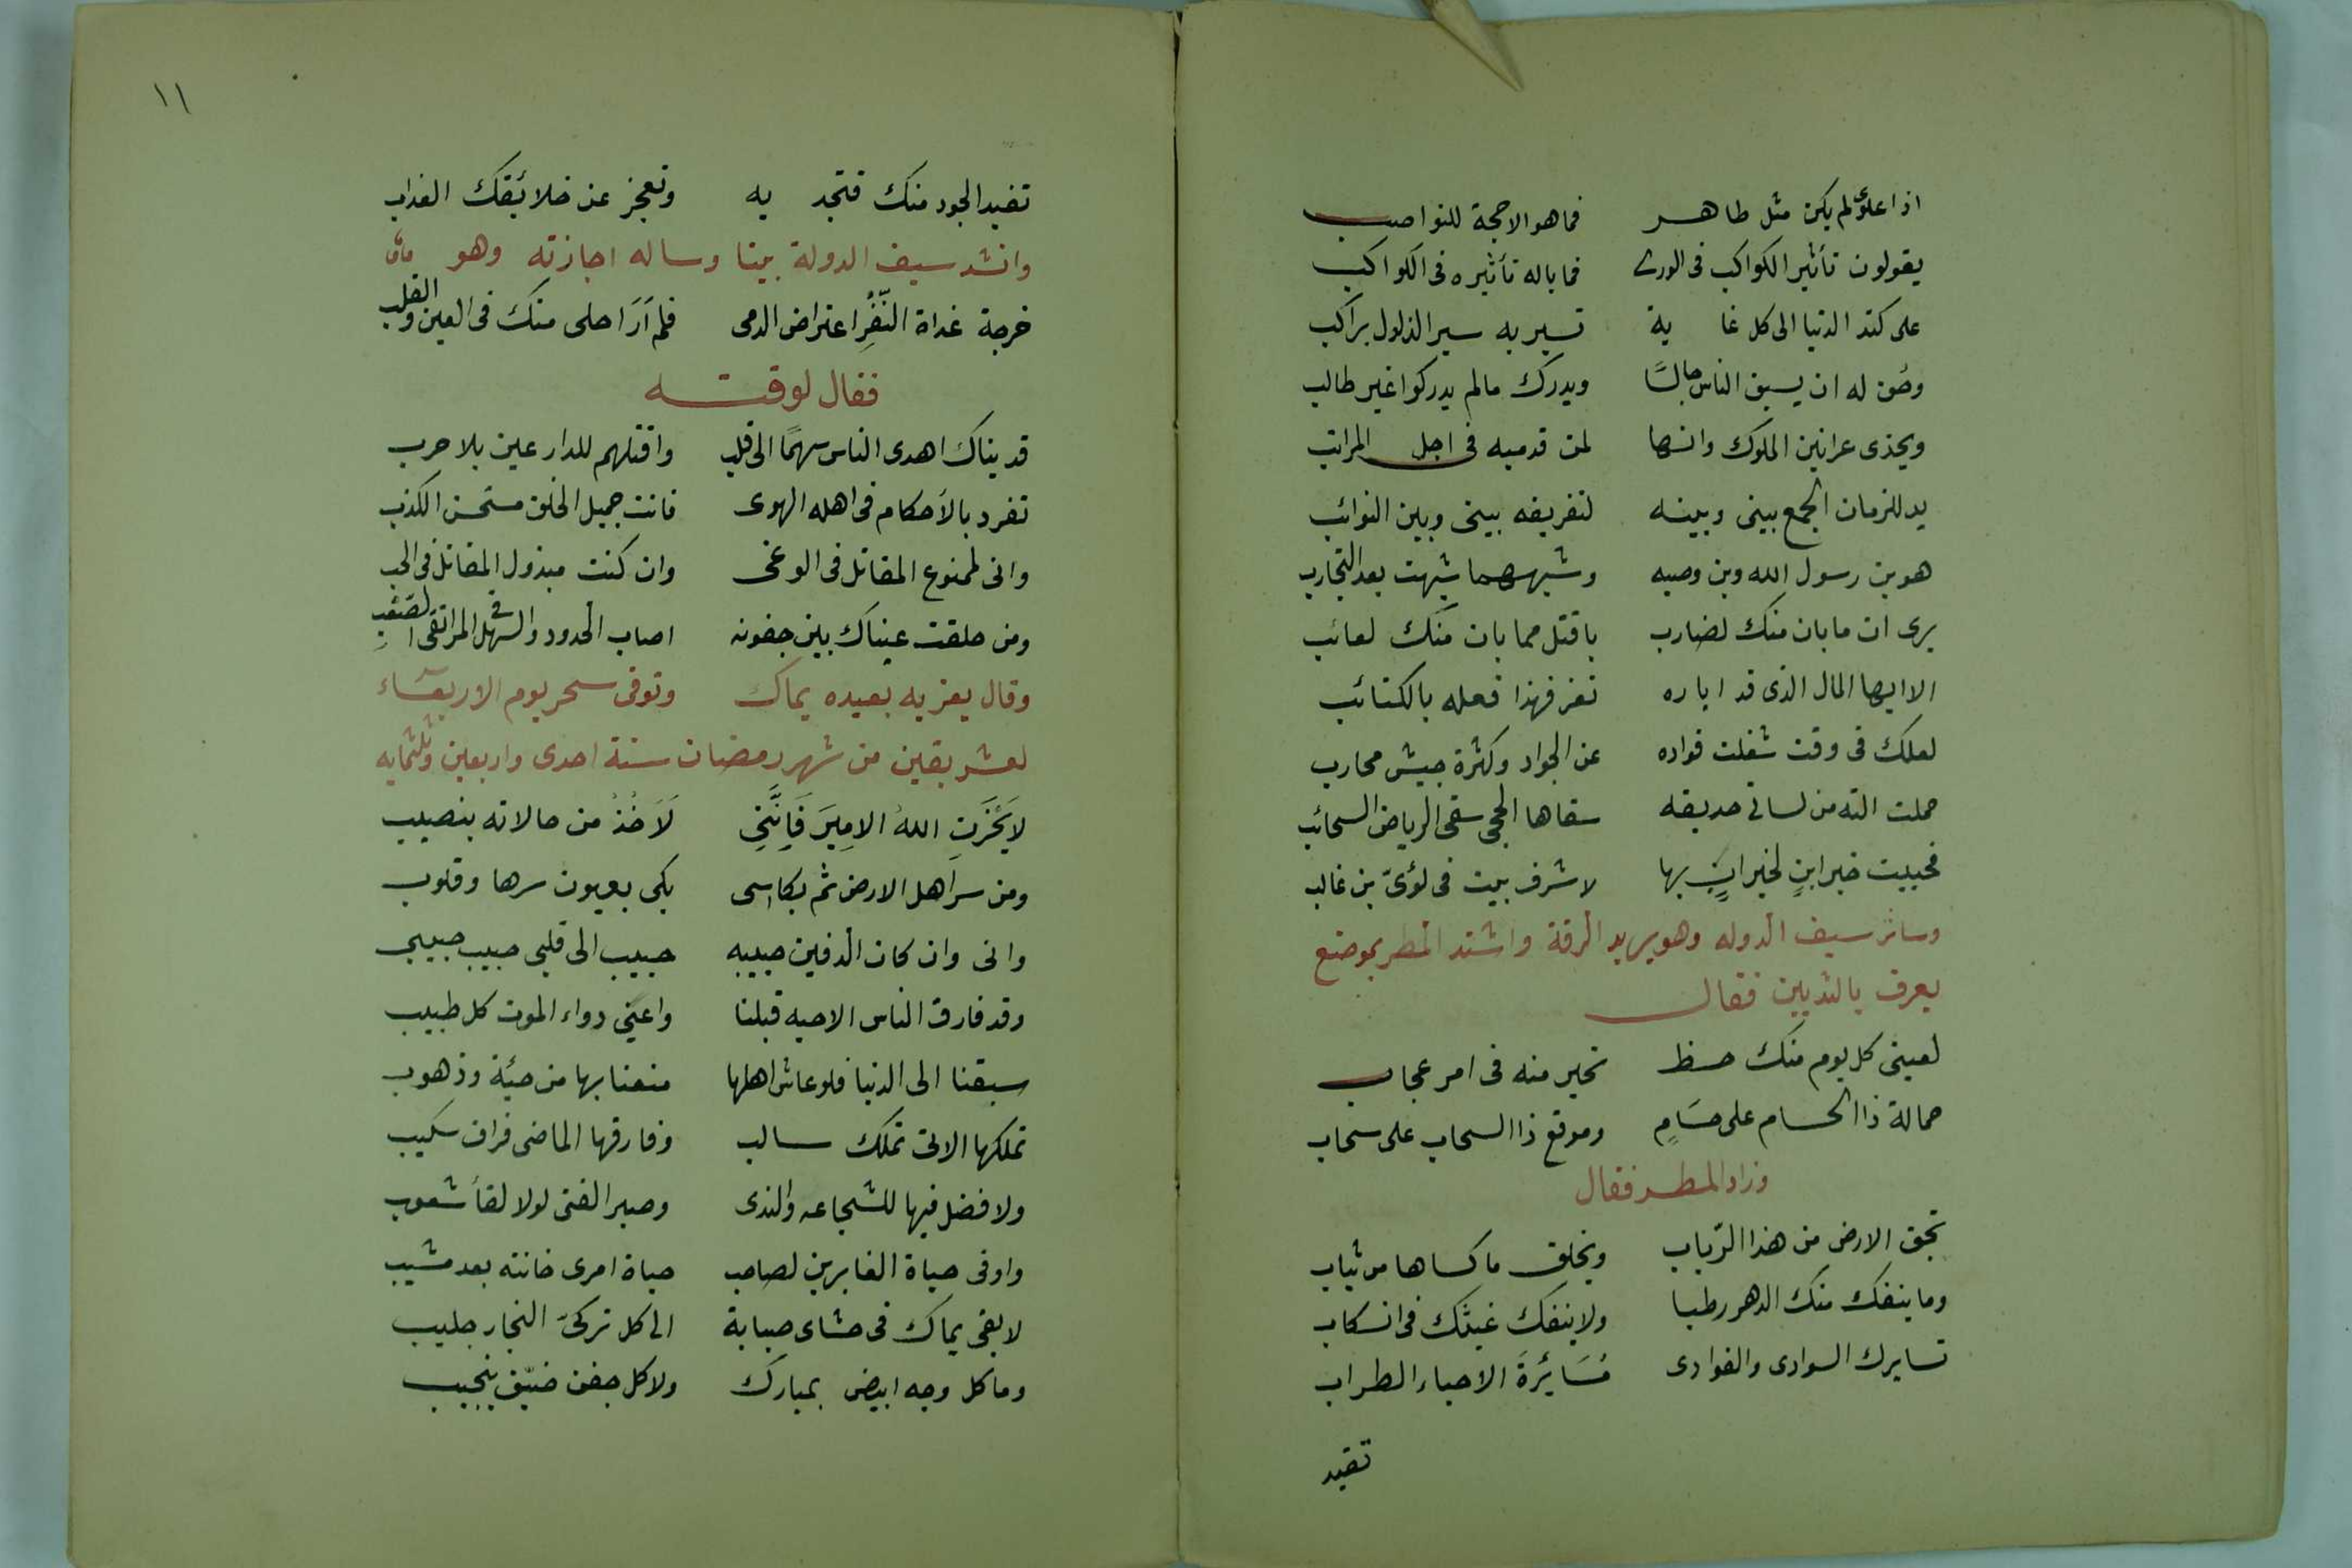 اذا علوى لم يكن مثل طاهر فما هو الا حجة للنواصب
يقولون تأثير الكواكب فى الورى فما باله تأثيره فى الكواكب
على كتد الدنيا الى كل غا ية تسير به سير الذلول براكب
وحق له ان يسبق الناس جالسًا ويدرك ما لم يدركوا غير طالب
ويحذى عرانين الملوك وانها لمن قدميه فى اجل المراتب
يد للزمان الجمع بينى وبينه لتفريقه بينى وبين النوائب
هو بن رسول الله وبن وصيه وشبههما شبهت بعد التجارب
يرى ان ما بان منك لضارب باقتل مما بان منك لعائب
الا ايها المال الذى قد اباره تعز فهذا فعله بالكتائب
لعلك فى وقت شغلت فواده عن الجواد وكثرة جيش محارب
حملت اليه من لسانى حديقه سقاها الحجى سقى الرياض السحائب
فحييت خير ابنٍ لخير ابٍ بها لاشرف بيت فى لؤىّ بن غالب
وسائر سيف الدوله وهو يريد الرقة واشتد المطر بموضع
يعرف بالثديين فقال
لعينى كل يوم منك حظ تحير منه فى امر عجاب
حمالة ذا الحسام على حسَامٍ وموقع ذا السحاب على سحاب
وزاد المطر فقال
تجف الارض من هذا الرّباب ويخلق ما كساها من ثياب
وما ينفك منك الدهر رطبا ولا ينفك غيثك فى انسكاب
تسايرك السوارى والغوادى مُسَايَرَةَ الاحباء الطراب
تفيد
١١
تفيد الجود منك فتجد يه وتعجز عن خلائقك العذاب
وانشد سيف الدولة بيتا وساله اجازته وهو
خرجة غداة النّفْرِ اعترض الدمى فلم اَرَ احلى منك فى العين والقلب
فقال لوقته
فديناك اهدى الناس سهمًا الى قلب واقتلهم للدارعين بلا حرب
تفرد بالاَحكام فى اهله الهوى فانت جميل الخلف مستحسن الكذب
وانى لممنوع المقاتل فى الوغى وان كنت مبذول المقاتل فى الحب
ومن خلقت عيناك بين جفونه اصاب الحدور والسهل فى المرتقى الصعب
وقال يعزيه بعبده يماك وتوفى سحر يوم الاربعاء
لعشر بقين من شهر رمضان سنة احدى واربعين وثلثمايه
لايَحْزَنِ اللهُ الاميرَ فَاِنَّنِى لَاَخُذُ من حالاته بنصيب
ومن سر اهل الارض ثم بكا اسى بكى بعيون سرها وقلوب
وانى وان كان الدفين حبيبه حبيب الى قلبى حبيب حبيبى
وقد فارق الناس الاحبه قبلنا واعيى دواء الموت كل طبيب
سبقنا الى الدنيا فلو عاش اهلها منعنا بها من جيئة وذهوب
تملكها الاتى تملك سالب وفارقها الماضى فراق سليب
ولا فضل فيها للشجاعه والندى وصبر الفتى لولا لقأ شعوب
واوفى حياة الغابرين لصاحب حياة امرى خانته بعد مشيب
لابقى يماك فى حشاى صبابة الى كل تركىّ النجار جليب
وما كل وجه ابيض بمبارك ولا كل جفن ضيّق بنجيب